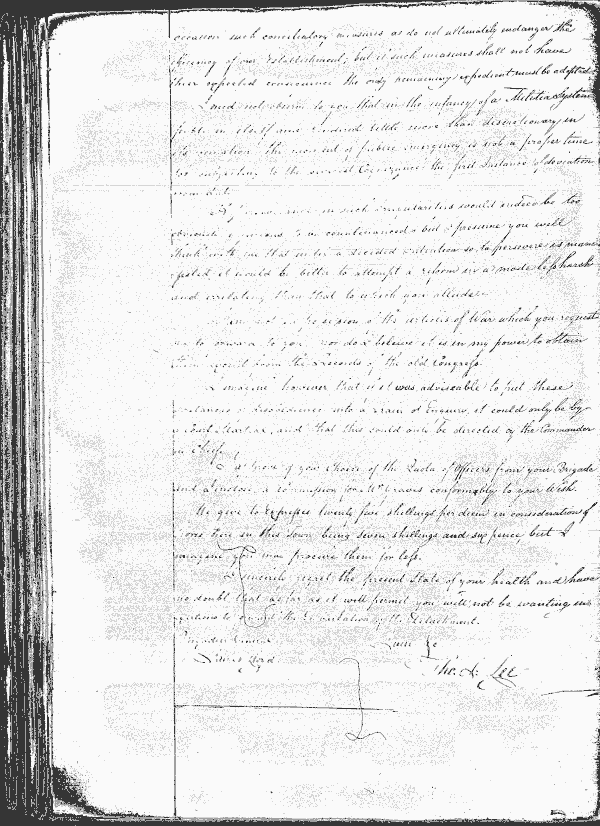 occasion such conciliatory measures as do not ultimately endanger the
efficiency of our Establishment; but if such measures shall not have
their expected consequence the only remaining expedient must be adopted.
I need not observe to you that in the infancy of a Militia System
feeble in itself and rendered little more than discretionary in
its the moment of public emergency is not a proper time
for subjecting to the severest Cognizance the first Instance of deviation
from duty.
in such irregularities would indeed be too
obviously to be countenanced but I presume you will
think with me that unless a decided intention so to persevere is mani-
fested, it would be better to attempt a reform in a mode less harsh
and irritating than that to which you allude.
I am not in possession of the articles of War which you request
me to forward to you, nor do I believe it is in my power to obtain
them except from the Records of the old Congress.
I imagine however that if it was adviseable to put these
instances of disobedience into a train of Enquiry, it could only be by
a Court Martial, and that this could only be directed by the Commander
in Chief.
I approve of your Choice of the Quota of Officers from your Brigade
and I inclose a Commission for Mr Graves conformably to your Wish.
We give to Expresses twenty five shillings per diem in consideration of
here in this town being seven shillings and six pence but I
imagine you may procure them for less.
I sincerely regret the present State of your health and have
no doubt that as far as it will permit you will not be wanting in
to the of the Detachment.
Brigadier General
I am &c
Tho. S. Lee